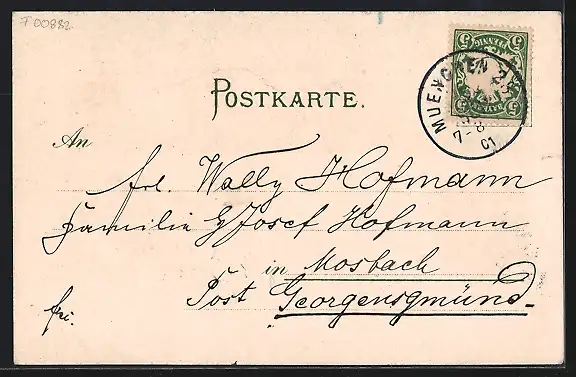 T 00882
POSTKARTE.
MUENCHEN
7-8
01
An
Frl. Wally Hofmann
Familie Josef Hofmann
in Mosbach
Post Georgensgmünd.